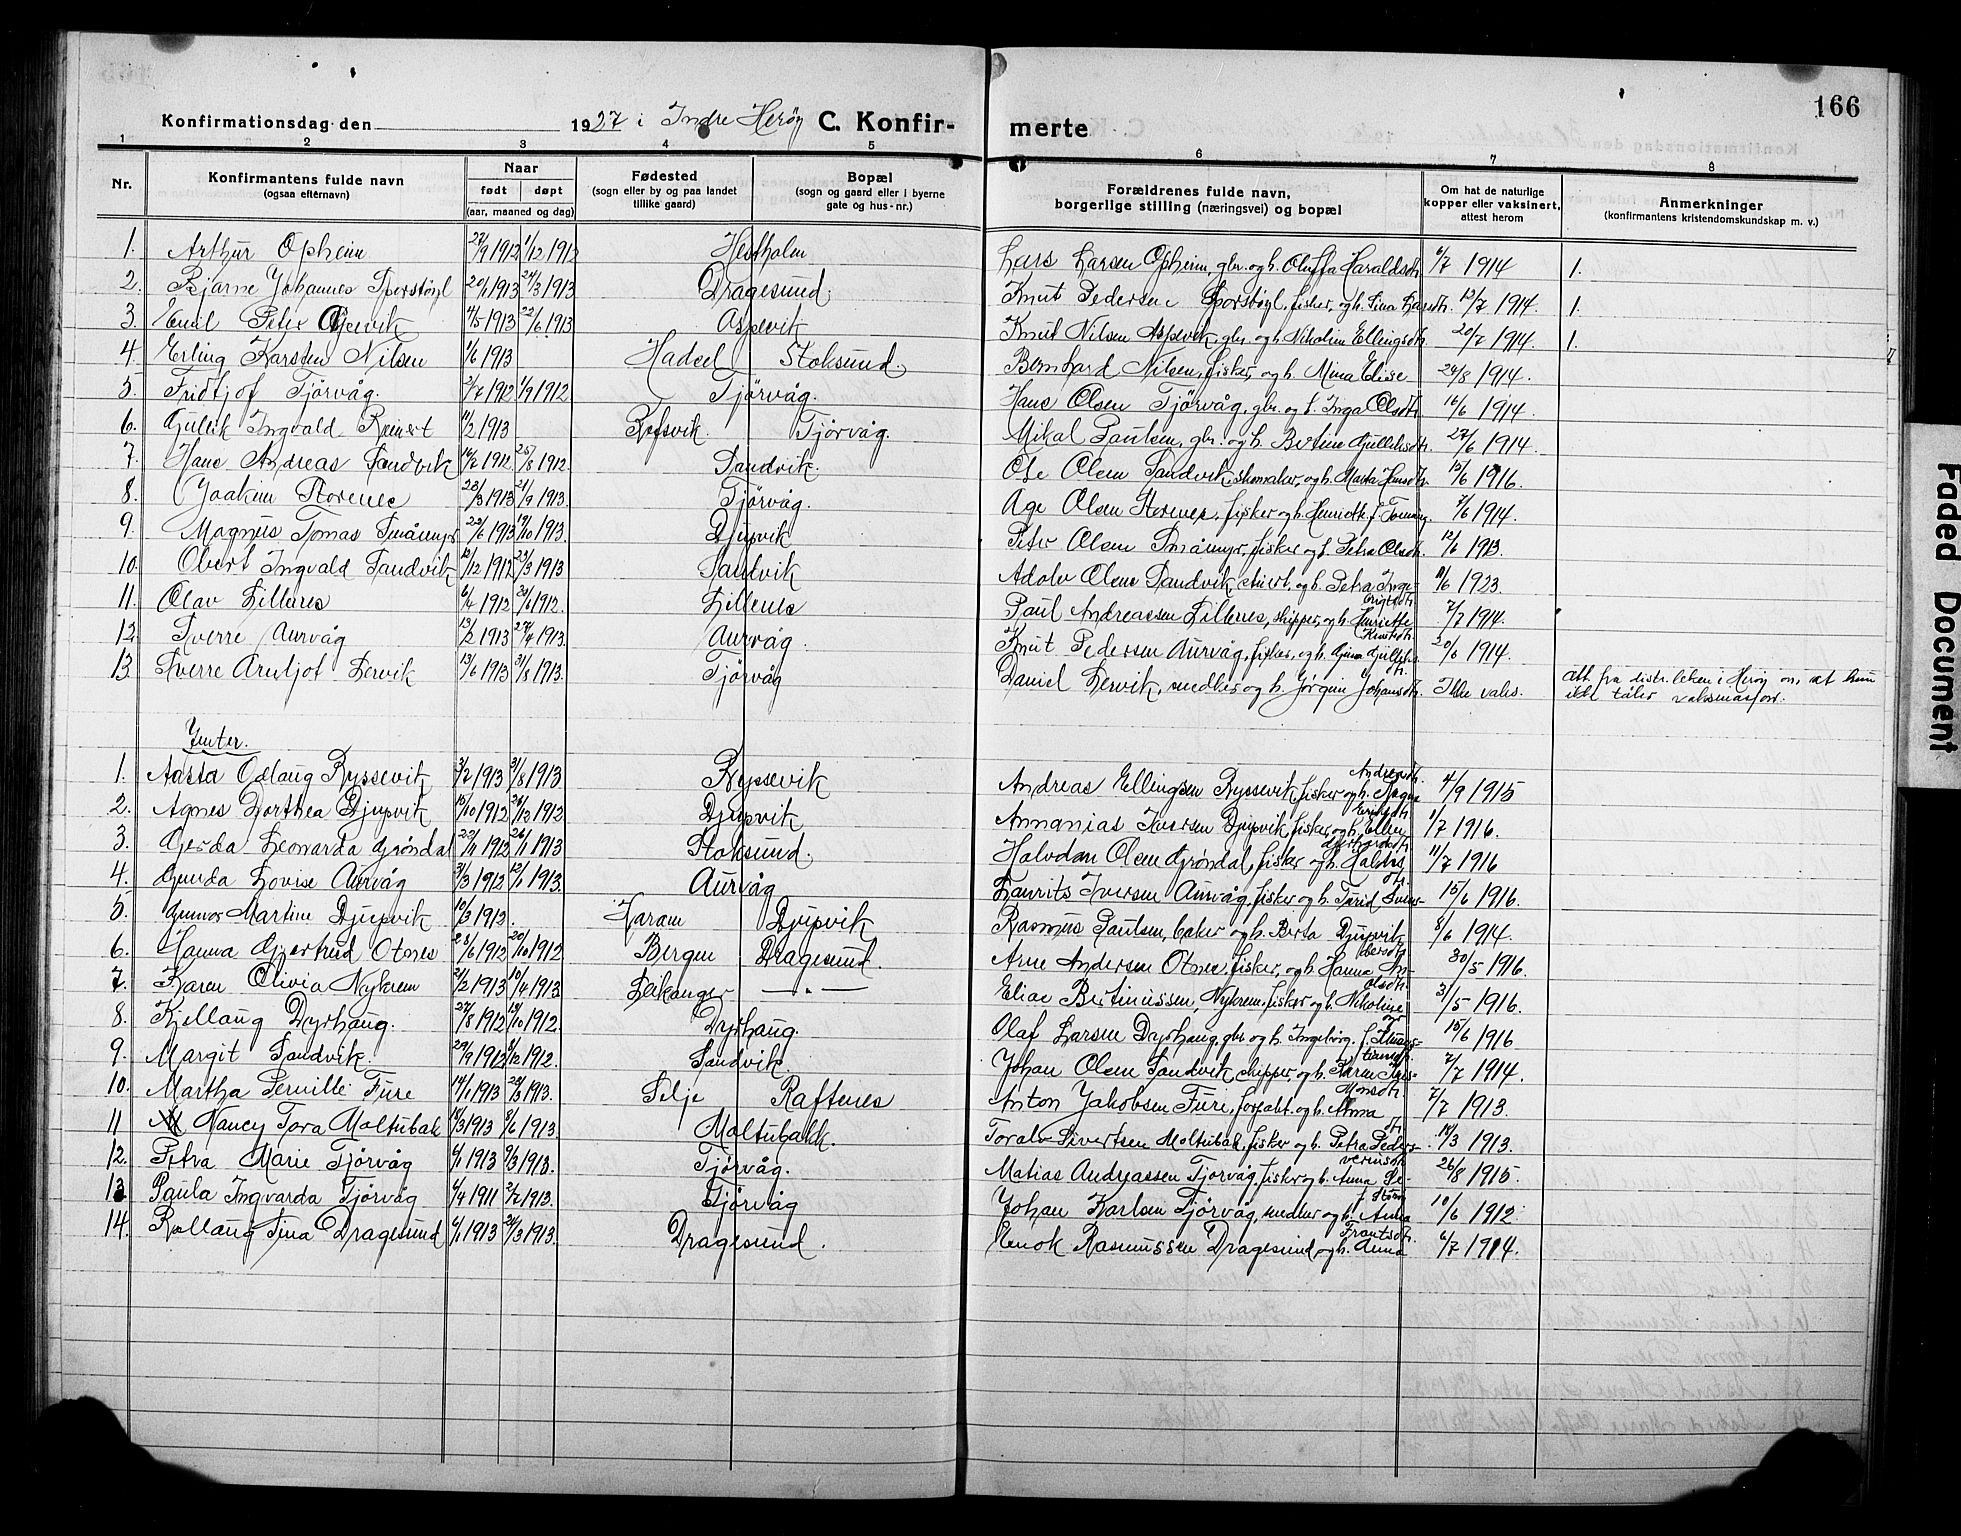 166
Konfirmationsdag den 1927 i Indre Herøy C. Konfirmerte
1 2 3 4 5 6 7 8
Nr. Konfirmantens fulde navn (ogsaa efternavn) Naar født døpt (aar, maaned og dag) Fødested (sogn eller by og paa landet tillike gaard) Bopæl (sogn og gaard eller i byerne gate og hus-nr.) Forældrenes fulde navn, borgerlige stilling (næringsvei) og bopæl Om hat de naturlige kopper eller vaksinert, attest herom Anmerkninger (konfirmantens kristendomskundskap m. v.)
1. Arthur Opheim 27/9 1912 1/12 1912 Hestholm Lars Larsen Opheim, gbr. og h. Oluffa Haraldsdt. 6/7 1914 1.
2. Bjarne Johannes Sporstøyl 20/1 1913 24/3 1913 Dragesund. Knut Pedersen Sporstøyl, fisker, og h. Lina Larsdt. 13/7 1914. 1.
3. Emil Peter Aspevik 4/5 1913 22/6 1913 Aspevik Knut Nilsen Aspevik, gbr. og h. Nikolin Ellingsdt. 20/7 1914. 1.
4. Erling Karsten Nilsen 1/6 1913 Hadsel Stoksund. Bernhard Nilsen, fisker, og h. Mina Elise 24/8 1914.
5. Fridtjof Tjörvåg. 2/7 1912 1/9 1912 Tjörvåg. Hans Olsen Tjörvåg, gbr. og h. Inga Olsdt. 16/6 1914.
6. Gullik Ingvald Reinert 11/2 1913 Refsvik. Tjörvåg. Mikal Paulsen, gbr. og h. Bertine Gulliksdt. 27/6 1914.
7. Hans Andreas Sandvik 14/7 1912. 25/8 1912. Sandvik. Ole Olsen Sandvik, skomaker, og h. Marta Hansdt. 13/6 1916.
8. Joakim Storenes 23/3 1913 21/9 1913. Tjörvåg. Age Olsen Storenes, fisker og h. Henrikke f. Tonning. 7/6 1914.
9. Magnus Tomas Småmyr 22/6 1913 19/10 1913. Djupvik Peter Olsen Småmyr, fisker og h. Petra Olsdt. 12/6 1913.
10. Obert Ingvald Sandvik 10/12 1912 23/3 1913 Sandvik Adolv Olsen Sandvik, stuert, og h. Petra Inge- 11/6 1923.
brigtsdt.
11. Olav Lillenes 6/4 1912 23/6 1912. Lillenes Paul Andreassen Lillenes, skipper, og h. Henriette 7/7 1914.
Knutsdt.
12. Sverre Aurvåg 13/2 1913 27/4 1913. Aurvåg. Knut Pedersen Aurvåg, fisker, og h. Gina Gulliks- 20/6 1914.
dt.
13 Sverre Arnljot Lervik 13/6 1913 31/8 1913. Tjörvåg Daniel Lervik, snedker og h. Jørgine Johansdt. Ikke vaks. Att. fra distr. leken i Herøy om, at hun
ikke tåler vaksinasjon.
Jenter.
1. Aasta Odlaug Ryssevik 3/7 1913 31/8 1913 Ryssevik Andreas Ellingsen Ryssevik fisker og h. Magna 4/9 1915
Andreasdt.
2. Agnes Dorthea Djupvik 15/10 1912 26/12 1912 Djupvik Annanias Iversen Djupvik, fisker, og h. Ellen 1/7 1916.
Eriksdt.
3. Gjerda Leonarda Grøndal 22/11 1912 26/1 1913 Stoksund. Halvdan Olsen Grøndal, fisker og h. 11/7 1916
4. Gunda Lovise Aurvåg 31/3 1912 12/1 1913. Aurvåg Laurits Iversen Aurvåg, fisker og h. Turid Iver- 15/6 1916.
dt.
5. Gunvor Martine Djupvik 10/3 1912. Haram Djupvik Rasmus Paulsen, baker og h. Berta Djupvik 8/6 1914.
6. Hanna Gjertrud Otnes 25/6 1912 20/10 1912 Bergen Dragesund. Arne Andersen Otnes, fisker, og h. Hanna An- 30/5 1916.
dersdt.
7. Karen Olivia Nykrem 21/2 1913 10/4 1913 Leikanger — " — Elias Bertinussen, Nykrem, fisker og h. Nikoline 31/5 1916.
Olsdt.
8. Kjellaug Dyrhaug. 27/8 1912 13/10 1912. Dyrhaug. Olaf Larsen Dyrhaug, gbr og h. Ingeborg, 15/6 1916
9. Margit Sandvik. 29/9 1912 8/12 1912. Sandvik. Johan Olsen Sandvik, skipper, og h. Karen 7/7 1914.
10. Martha Pernille Füre 14/1 1913 24/3 1913. Selje Raftenes Anton Jakobsen Füre, forpakt. og h. Anna 7/7 1913.
Monsdt.
11 Nancy Tora Moltubak 14/3 1913 8/6 1913. Moltubakk. Toralv Sivertsen Moltubak, fisker og h. Petra Peders- 14/3 1913.
dt.
12. Petra Marie Tjörvåg 6/1 1913 9/3 1913. Tjörvåg. Matias Andreassen Tjörvåg, fisker og h. Anna Se- 26/8 1915.
verinsdt.
13. Paula Ingvarda Tjörvåg 6/4 1911 2/2 1913. Tjörvåg Johan Karlsen Tjörvåg, snedker og h. Anna 10/6 1912.
14. Rollaug Sina Dragesund 6/1 1913 24/3 1913. Dragesund. Enok Rasmussen Dragesund, og h. Anna 6/7 1914.
Frantsdt.
Faded Document